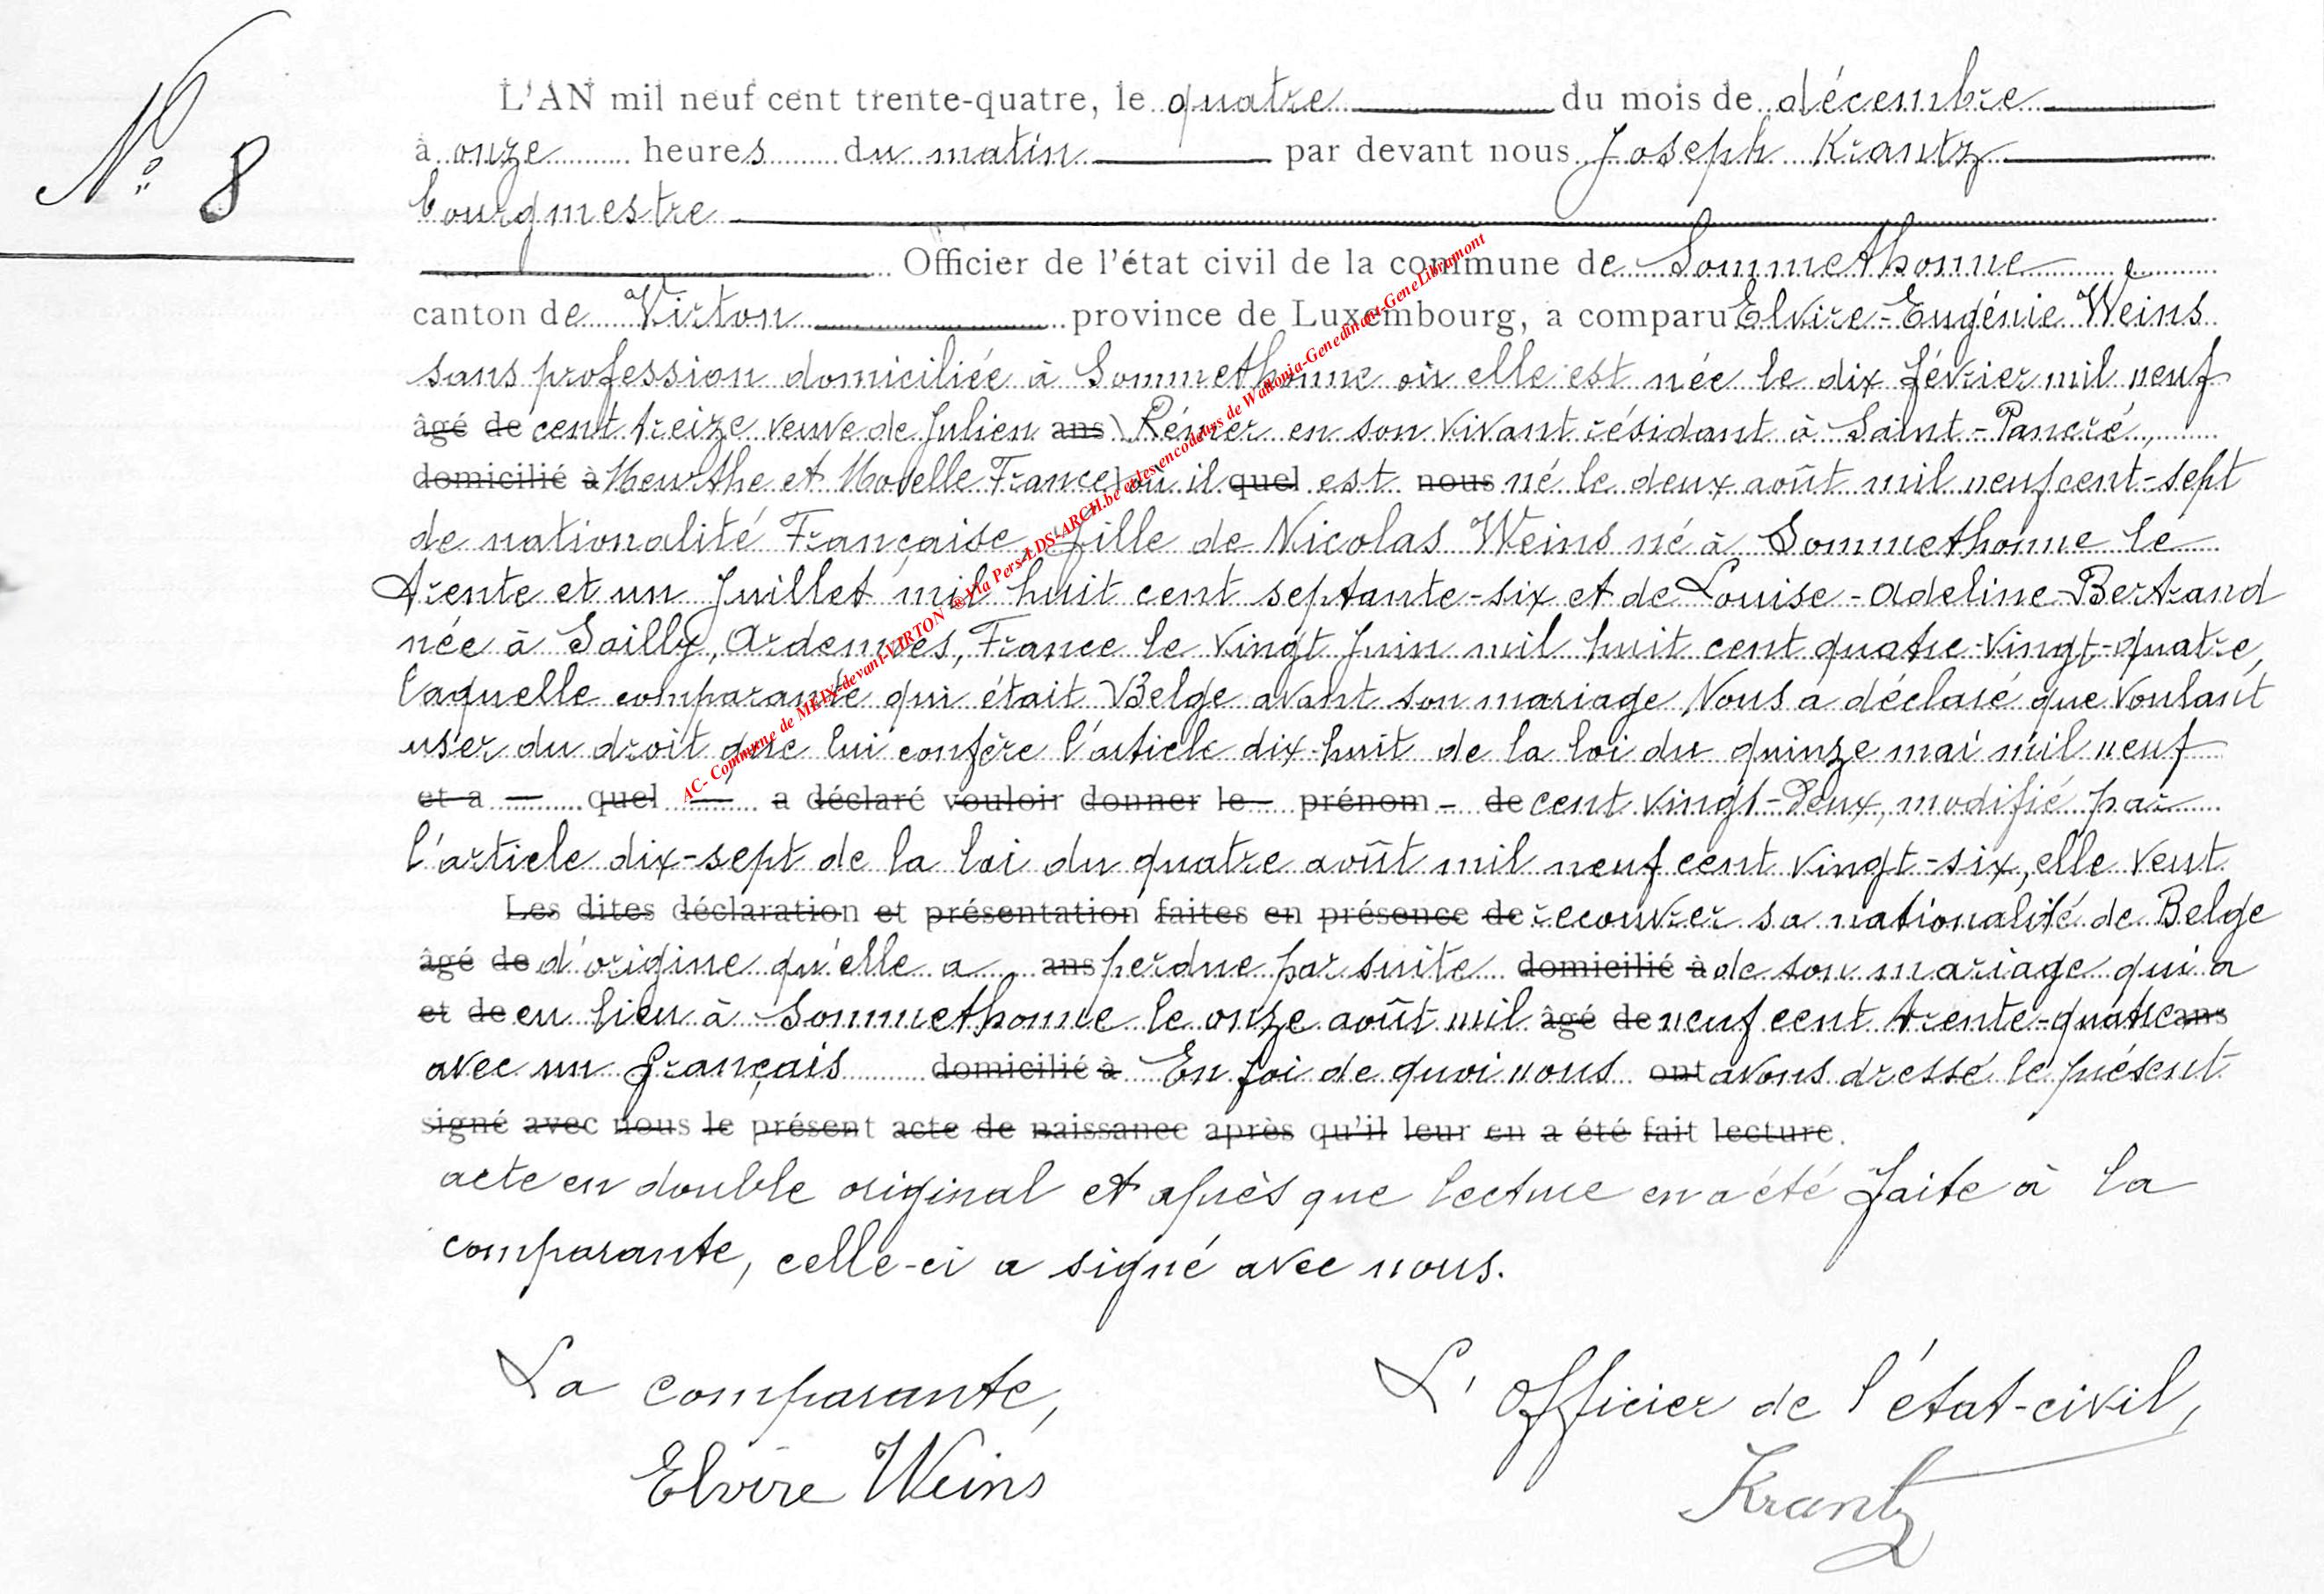 N° 8
L'AN mil neuf cent trente-quatre, le quatre du mois de décembre
à onze heures du matin par devant nous Joseph Krantz
bourgmestre
Officier de l'état civil de la commune de Sommethonne
canton de Virton province de Luxembourg, a comparu Elvire-Eugénie Weins
sans profession domiciliée à Sommethonne où elle est née le dix février mil neuf
âgé de cent treize veuve de Julien ans en son vivant résidant à Saint-Pancré
domicilié à Meurthe et Moselle France) où il quel est nous né le deux août mil neuf cent-sept
de nationalité Française, fille de Nicolas Weins né à Sommethonne le
trente et un Juillet mil huit cent septante-six et de Louise-Adeline Bertrand
née à Sailly, Ardennes, France le vingt Juin mil huit cent quatre-vingt-quatre,
laquelle comparante qui était Belge avant son mariage Nous a déclaré que voulant
user du droit que lui confère l'article dix-huit de la loi du quinze mai mil neuf
et a quel a déclaré vouloir donner le prénom de cent vingt-Deux, modifié par
l'article dix-sept de la loi du quatre août mil neuf cent vingt-six, elle veut
Les dites déclaration et présentation faites en présence de recouvrer sa nationalité de Belge
âgé de d'origine qu'elle a ans perdue par suite domicilié à de son mariage qui a
et de eu lieu à Sommethonne le onze août mil âgé de neuf cent trente-quatre ans
avec un français domicilié à En foi de quoi nous ont avons dressé le présent
signé avec nous le présent acte de naissance après qu'il leur en a été fait lecture.
acte en double original et après que lecture en a été faite à la
comparante, celle-ci a signé avec nous.
La comparante, L'officier de l'état-civil,
Elvire Weins Krantz
AC- Commune de MEIX-devant-VIRTON ® Via Pers-LDS-ARCH.be et les encodeurs de Wallonia-Genedinant-GeneLibramont